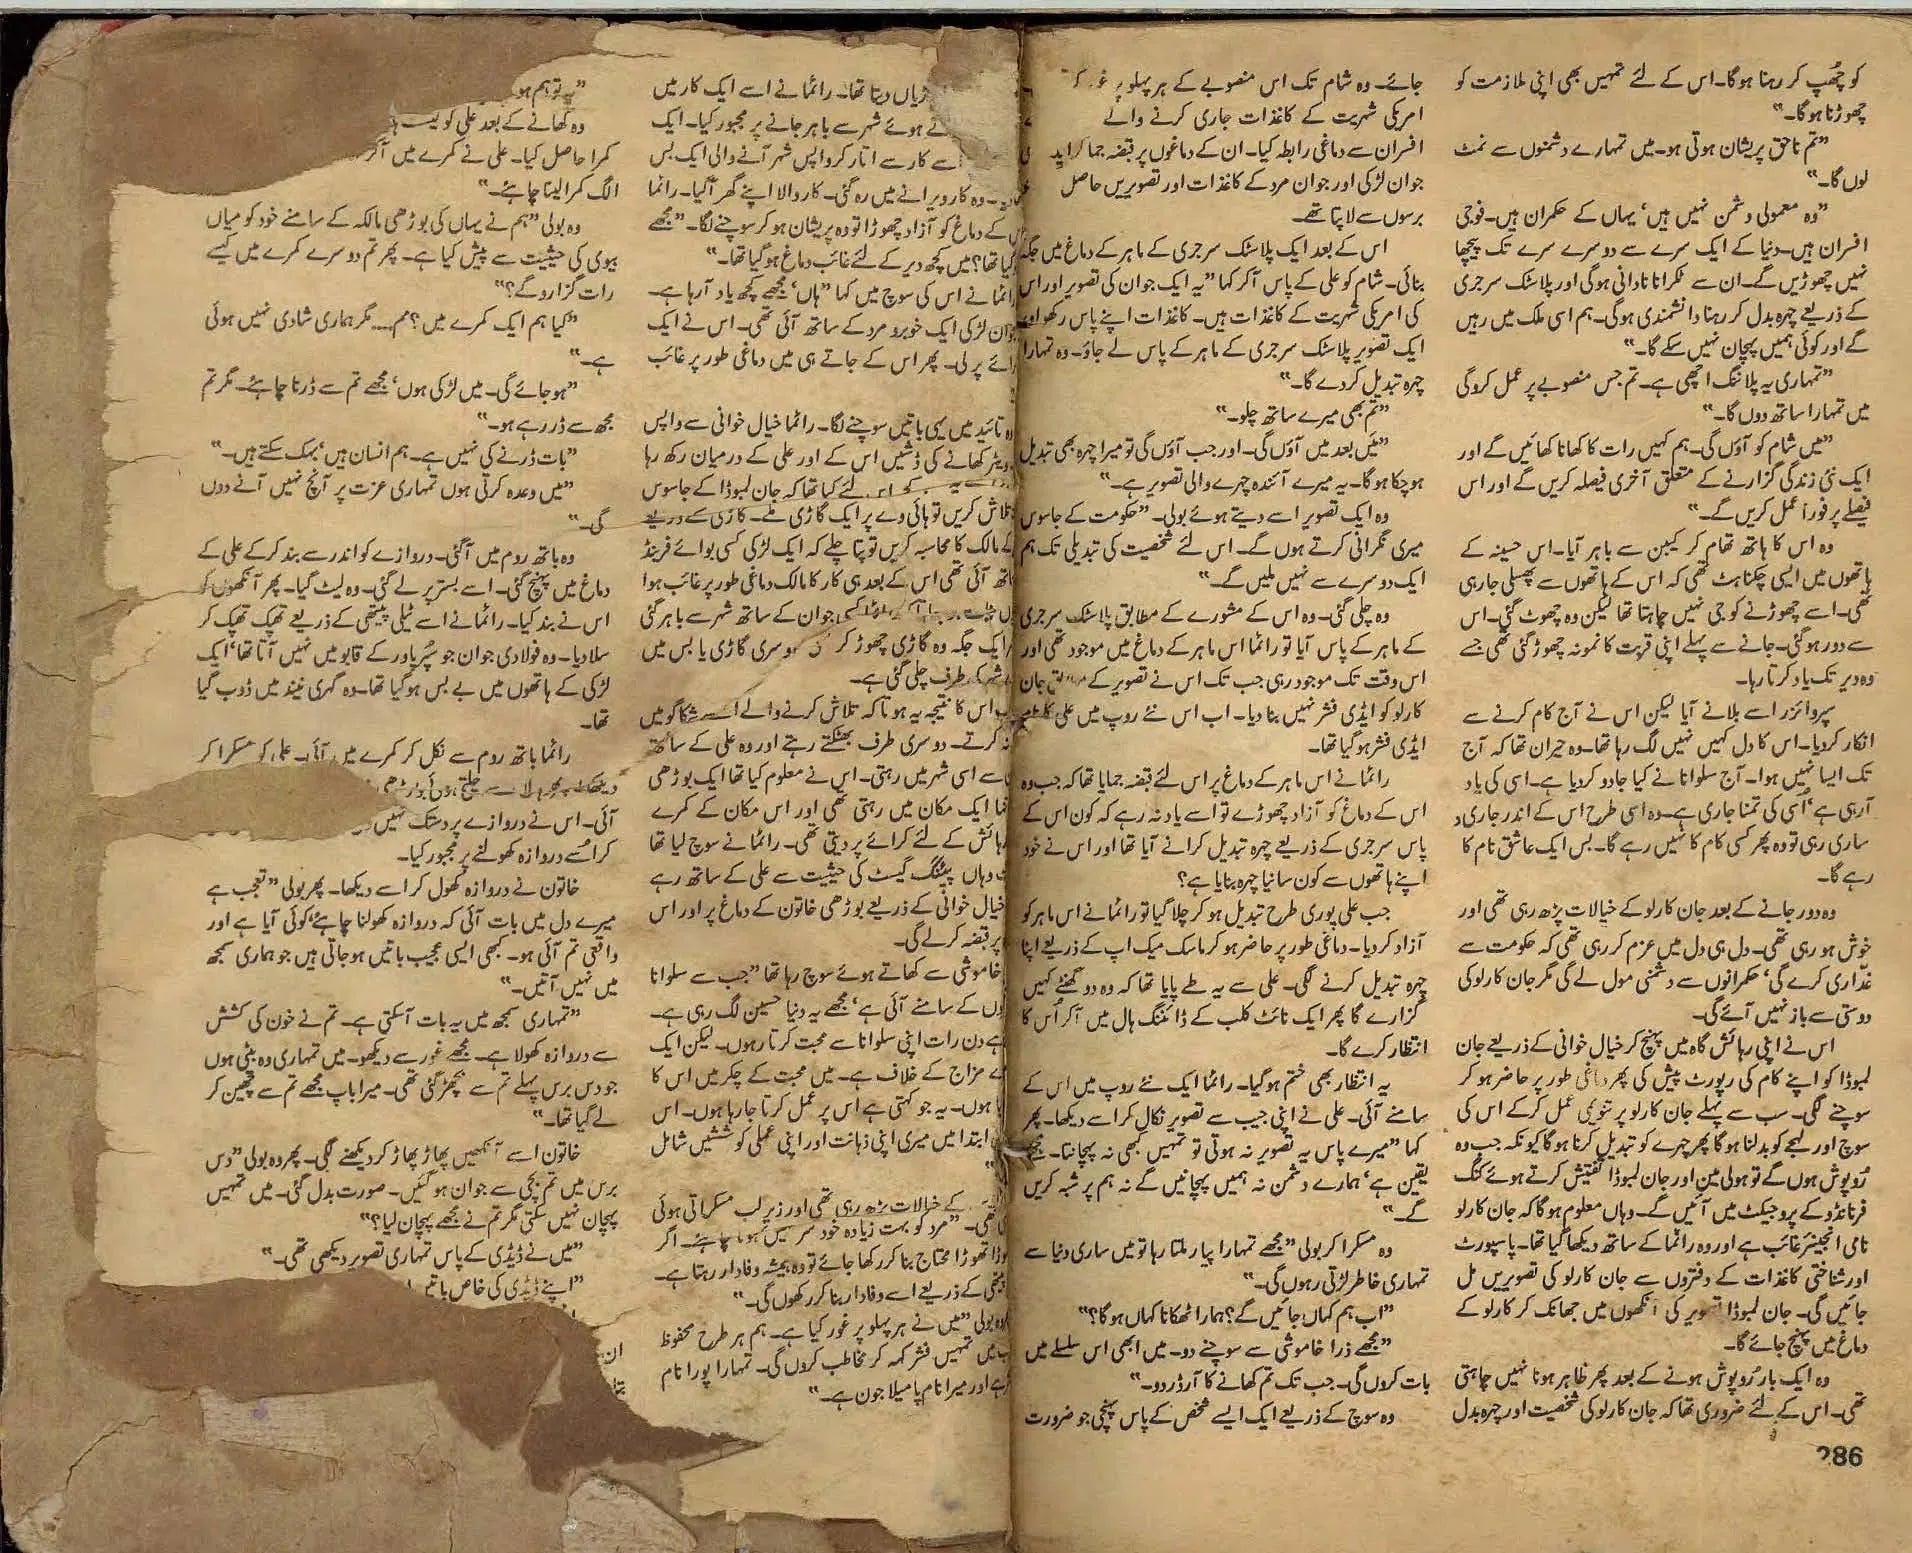 کو چھپ کر رہنا ہوگا۔ اس کے لئے تمہیں بھی اپنی ملازمت کو
چھوڑنا ہوگا۔“
”تم ناحق پریشان ہوتی ہو۔ میں تمہارے دشمنوں سے نمٹ
لوں گا۔“
”وہ معمولی دشمن نہیں ہیں‘ یہاں کے حکمران ہیں۔ فوجی
افسران ہیں۔ دنیا کے ایک سرے سے دوسرے سرے تک پیچھا
نہیں چھوڑیں گے۔ ان سے ٹکرانا نادانی ہوگی اور پلاسٹک سرجری
کے ذریعے چہرہ بدل کر رہنا دانشمندی ہوگی۔ ہم اسی ملک میں رہیں
گے اور کوئی ہمیں پہچان نہیں سکے گا۔“
”تمہاری یہ پلاننگ اچھی ہے۔ تم جس منصوبے پر عمل کروگی
میں تمہارا ساتھ دوں گا۔“
”میں شام کو آؤں گی۔ ہم کہیں رات کا کھانا کھائیں گے اور
ایک نئی زندگی گزارنے کے متعلق آخری فیصلہ کریں گے اور اس
فیصلے پر فوراً عمل کریں گے۔“
وہ اس کا ہاتھ تھام کر کیبن سے باہر آیا۔ اس حسینہ کے
ہاتھوں میں ایسی چکناہٹ تھی کہ اس کے ہاتھوں سے پھسلی جارہی
تھی۔ اسے چھوڑنے کو جی نہیں چاہتا تھا لیکن وہ چھوٹ گئی۔ اس
سے دور ہوگئی۔ جانے سے پہلے اپنی قربت کا نمونہ چھوڑ گئی تھی جسے
وہ دیر تک یاد کرتا رہا۔
سپروائزر اسے بلانے آیا لیکن اس نے آج کام کرنے سے
انکار کردیا۔ اس کا دل کہیں نہیں لگ رہا تھا۔ وہ حیران تھا کہ آج
تک ایسا نہیں ہوا۔ آج سلوانا نے کیا جادو کردیا ہے۔ اسی کی یاد
آرہی ہے‘ اُسی کی تمنا جاری ہے۔ وہ اسی طرح اس کے اندر جاری و
ساری رہی تو وہ پھر کسی کام کا نہیں رہے گا۔ بس ایک عاشق نام کا
رہے گا۔
وہ دور جانے کے بعد جان کارلو کے خیالات پڑھ رہی تھی اور
خوش ہو رہی تھی۔ دل ہی دل میں عزم کر رہی تھی کہ حکومت سے
غدّاری کرے گی‘ حکمرانوں سے دشمنی مول لے گی مگر جان کارلو کی
دوستی سے باز نہیں آئے گی۔
اس نے اپنی رہائش گاہ میں پہنچ کر خیال خوانی کے ذریعے جان
لمبوڈا کو اپنے کام کی رپورٹ پیش کی پھر دماغی طور پر حاضر ہو کر
سوچنے لگی۔ سب سے پہلے جان کارلو پر تنویمی عمل کرکے اس کی
سوچ اور لہجے کو بدلنا ہوگا پھر چہرے کو تبدیل کرنا ہوگا کیونکہ جب وہ
رُوپوش ہوں گے تو ہولی مین اور جان لمبوڈا تفتیش کرتے ہوئے کنگ
فرنانڈو کے پروجیکٹ میں آئیں گے۔ وہاں معلوم ہوگا کہ جان کارلو
نامی انجینئر غائب ہے اور وہ رانما کے ساتھ دیکھا گیا تھا۔ پاسپورٹ
اور شناختی کاغذات کے دفتروں سے جان کارلو کی تصویریں مل
جائیں گی۔ جان لمبوڈا تصویر کی آنکھوں میں جھانک کر کارلو کے
دماغ میں پہنچ جائے گا۔
وہ ایک بار رُوپوش ہونے کے بعد پھر ظاہر ہونا نہیں چاہتی
تھی۔ اس کے لئے ضروری تھا کہ جان کارلو کی شخصیت اور چہرہ بدل
286
جائے۔ وہ شام تک اس منصوبے کے ہر پہلو پر غور
امریکی شہریت کے کاغذات جاری کرنے والے
افسران سے دماغی رابطہ کیا۔ ان کے دماغوں پر قبضہ جما کر ایک
جوان لڑکی اور جوان مرد کے کاغذات اور تصویریں حاصل
برسوں سے لاپتا تھے۔
اس کے بعد ایک پلاسٹک سرجری کے ماہر کے دماغ میں جگہ
بنائی۔ شام کو علی کے پاس آکر کہا ”یہ ایک جوان کی تصویر اور اس
کی امریکی شہریت کے کاغذات ہیں۔ کاغذات اپنے پاس رکھو اور
ایک تصویر پلاسٹک سرجری کے ماہر کے پاس لے جاؤ۔ وہ تمہارا
چہرہ تبدیل کردے گا۔“
”تم بھی میرے ساتھ چلو۔“
”میں بعد میں آؤں گی۔ اور جب آؤں گی تو میرا چہرہ بھی تبدیل
ہوچکا ہوگا۔ یہ میرے آئندہ چہرے والی تصویر ہے۔“
وہ ایک تصویر اسے دیتے ہوئے بولی۔ ”حکومت کے جاسوس
میری نگرانی کرتے ہوں گے۔ اس لئے شخصیت کی تبدیلی تک ہم
ایک دوسرے سے نہیں ملیں گے۔“
وہ چلی گئی۔ وہ اس کے مشورے کے مطابق پلاسٹک سرجری
کے ماہر کے پاس آیا تو رانما اس ماہر کے دماغ میں موجود تھی اور
اس وقت تک موجود رہی جب تک اس نے تصویر کے مطابق جان
کارلو کو ایڈی فشر نہیں بنا دیا۔ اب اس نئے روپ میں علی کا نام
ایڈی فشر ہوگیا تھا۔
رانما نے اس ماہر کے دماغ پر اس لئے قبضہ جمایا تھا کہ جب وہ
اس کے دماغ کو آزاد چھوڑے تو اسے یاد نہ رہے کہ کون اس کے
پاس سرجری کے ذریعے چہرہ تبدیل کرانے آیا تھا اور اس نے خود
اپنے ہاتھوں سے کون سا نیا چہرہ بنایا ہے؟
جب علی پوری طرح تبدیل ہو کر چلا گیا تو رانما نے اس ماہر کو
آزاد کردیا۔ دماغی طور پر حاضر ہو کر ماسک میک اپ کے ذریعے اپنا
چہرہ تبدیل کرنے لگی۔ علی سے یہ طے پایا تھا کہ وہ دو گھنٹے کہیں
گزارے گا پھر ایک نائٹ کلب کے ڈائننگ ہال میں آکر اُس کا
انتظار کرے گا۔
یہ انتظار بھی ختم ہوگیا۔ رانما ایک نئے روپ میں اس کے
سامنے آئی۔ علی نے اپنی جیب سے تصویر نکال کر اسے دیکھا۔ پھر
کہا ”میرے پاس یہ تصویر نہ ہوتی تو تمہیں کبھی نہ پہچانتا۔ مجھے
یقین ہے‘ ہمارے دشمن نہ ہمیں پہچانیں گے نہ ہم پر شبہ کریں
گے۔“
وہ مسکرا کر بولی ”مجھے تمہارا پیار ملتا رہا تو میں ساری دنیا سے
تمہاری خاطر لڑتی رہوں گی۔“
”اب ہم کہاں جائیں گے؟ ہمارا ٹھکانا کہاں ہوگا؟“
”مجھے ذرا خاموشی سے سوچنے دو۔ میں ابھی اس سلسلے میں
بات کروں گی۔ جب تک تم کھانے کا آرڈر دو۔“
وہ سوچ کے ذریعے ایک ایسے شخص کے پاس پہنچی جو ضرورت
دیتا تھا۔ رانما نے اسے ایک کار میں
ہوئے شہر سے باہر جانے پر مجبور کیا۔ ایک
اسے کار سے اتار کر واپس شہر آنے والی ایک بس
وہ کار ویرانے میں رہ گئی۔ کار والا اپنے گھر آگیا۔ رانما
کے دماغ کو آزاد چھوڑا تو وہ پریشان ہو کر سوچنے لگا۔ ”مجھے
کیا تھا؟ میں کچھ دیر کے لئے غائب دماغ ہوگیا تھا۔“
رانما نے اس کی سوچ میں کہا ”ہاں‘ مجھے کچھ یاد آرہا ہے۔
جوان لڑکی ایک خوبرو مرد کے ساتھ آئی تھی۔ اس نے ایک
پر لی۔ پھر اس کے جاتے ہی میں دماغی طور پر غائب
وہ تائید میں یہی باتیں سوچنے لگا۔ رانما خیال خوانی سے واپس
ویٹر کھانے کی ڈشیں اس کے اور علی کے درمیان رکھ رہا
اس لئے کیا تھا کہ جان لمبوڈا کے جاسوس
تلاش کریں تو ہائی وے پر ایک گاڑی ملے۔ گاڑی کے ذریعے
کے مالک کا محاسبہ کریں تو پتا چلے کہ ایک لڑکی کسی بوائے فرینڈ
ساتھ آئی تھی اس کے بعد ہی کار کا مالک دماغی طور پر غائب ہوا
جوان کے ساتھ شہر سے باہر گئی
ایک جگہ وہ گاڑی چھوڑ کر دوسری گاڑی یا بس میں
طرف چلی گئی ہے۔
اس کا نتیجہ یہ ہوتا کہ تلاش کرنے والے اسے شکاگو میں
نہ کرتے۔ دوسری طرف بھٹکتے رہتے اور وہ علی کے ساتھ
سے اسی شہر میں رہتی۔ اس نے معلوم کیا تھا ایک بوڑھی
ایک مکان میں رہتی تھی اور اس مکان کے کمرے
رہائش کے لئے کرائے پر دیتی تھی۔ رانما نے سوچ لیا تھا
وہاں پیئنگ گیسٹ کی حیثیت سے علی کے ساتھ رہے
خیال خوانی کے ذریعے بوڑھی خاتون کے دماغ پر اور اس
پر قبضہ کرلے گی۔
خاموشی سے کھاتے ہوئے سوچ رہا تھا ”جب سے سلوانا
کے سامنے آئی ہے‘ مجھے یہ دنیا حسین لگ رہی ہے۔
دن رات اپنی سلوانا سے محبت کرتا رہوں۔ لیکن ایک
مزاج کے خلاف ہے۔ میں محبت کے چکر میں اس کا
ہوں۔ یہ جو کہتی ہے اس پر عمل کرتا جارہا ہوں۔ اس
ابتدا میں میری اپنی ذہانت اور اپنی عملی کوششیں شامل
کے خیالات پڑھ رہی تھی اور زیر لب مسکراتی ہوئی
تھی۔ ”مرد کو بہت زیادہ خود سر نہیں ہونا چاہئے۔ اگر
تھوڑا محتاج بنا کر رکھا جائے تو وہ ہمیشہ وفادار رہتا ہے۔
کے ذریعے اسے وفادار بنا کر رکھوں گی۔“
وہ بولی ”میں نے ہر پہلو پر غور کیا ہے۔ ہم ہر طرح محفوظ
میں تمہیں فشر کہہ کر مخاطب کروں گی۔ تمہارا پورا نام
ہے اور میرا نام پامیلا جون ہے۔“
”یہ تو ہم
وہ کھانے کے بعد علی کو
کمرا حاصل کیا۔ علی نے کمرے میں آکر
الگ کمرا لینا چاہئے۔“
وہ بولی ”ہم نے یہاں کی بوڑھی مالکہ کے سامنے خود کو میاں
بیوی کی حیثیت سے پیش کیا ہے۔ پھر تم دوسرے کمرے میں کیسے
رات گزارو گے؟“
”کیا ہم ایک کمرے میں؟ مم... مگر ہماری شادی نہیں ہوئی
ہے۔“
”ہوجائے گی۔ میں لڑکی ہوں‘ مجھے تم سے ڈرنا چاہئے۔ مگر تم
مجھ سے ڈر رہے ہو۔“
”بات ڈرنے کی نہیں ہے۔ ہم انسان ہیں‘ بہک سکتے ہیں۔“
”میں وعدہ کرتی ہوں تمہاری عزت پر آنچ نہیں آنے دوں
گی۔“
وہ باتھ روم میں آگئی۔ دروازے کو اندر سے بند کرکے علی کے
دماغ میں پہنچ گئی۔ اسے بستر پر لے گئی۔ وہ لیٹ گیا۔ پھر آنکھوں کو
اس نے بند کیا۔ رانما نے اسے ٹیلی پیتھی کے ذریعے تھپک تھپک کر
سلادیا۔ وہ فولادی جوان جو سُپر پاور کے قابو میں نہیں آتا تھا‘ ایک
لڑکی کے ہاتھوں میں بے بس ہوگیا تھا۔ وہ گہری نیند میں ڈوب گیا
تھا۔
رانما باتھ روم سے نکل کر کمرے میں آئی۔ علی کو مسکرا کر
دیکھا پھر وہاں سے چلتی ہوئی بوڑھی
آئی۔ اس نے دروازے پر دستک نہیں
کر اُسے دروازہ کھولنے پر مجبور کیا۔
خاتون نے دروازہ کھول کر اسے دیکھا۔ پھر بولی ”تعجب ہے
میرے دل میں بات آئی کہ دروازہ کھولنا چاہئے‘ کوئی آیا ہے اور
واقعی تم آئی ہو۔ کبھی ایسی عجیب باتیں ہوجاتی ہیں جو ہماری سمجھ
میں نہیں آتیں۔“
”تمہاری سمجھ میں یہ بات آسکتی ہے۔ تم نے خون کی کشش
سے دروازہ کھولا ہے۔ مجھے غور سے دیکھو۔ میں تمہاری وہ بیٹی ہوں
جو دس برس پہلے تم سے بچھڑ گئی تھی۔ میرا باپ مجھے تم سے چھین کر
لے گیا تھا۔“
خاتون اسے آنکھیں پھاڑ پھاڑ کر دیکھنے لگی۔ پھر وہ بولی ”دس
برس میں تم بچی سے جوان ہوگئیں۔ صورت بدل گئی۔ میں تمہیں
پہچان نہیں سکتی مگر تم نے مجھے پہچان لیا؟“
”میں نے ڈیڈی کے پاس تمہاری تصویر دیکھی تھی۔“
”اپنے ڈیڈی کی خاص باتیں
ان